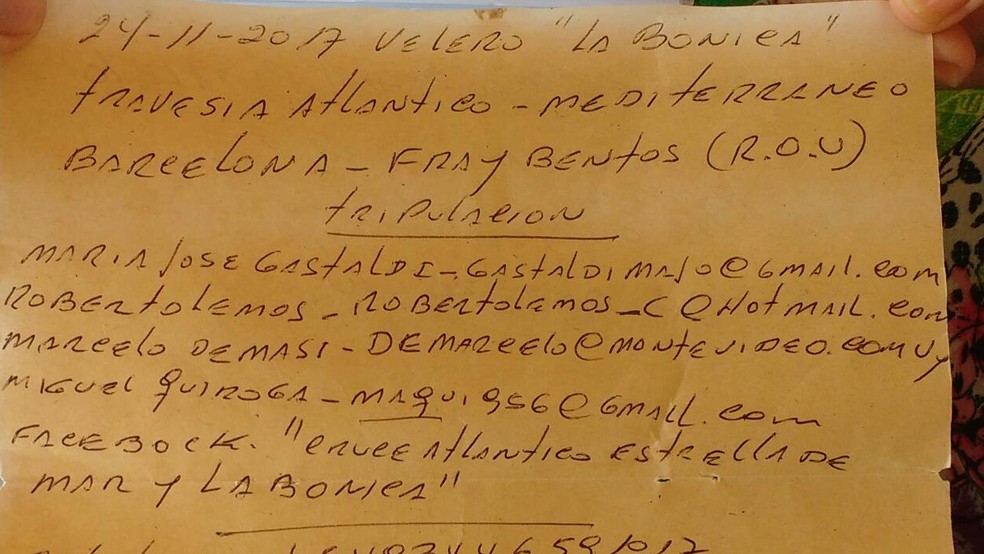 24-11-2017 VELERO "LA BONICA"
TRAVESIA ATLANTICO - MEDITERRANEO
BARCELONA - FRAY BENTOS (R.O.U)
TRIPULACION
MARIA JOSE GASTALDI - GASTALDIMAJO@GMAIL.COM
ROBERTO LEMOS - ROBERTOLEMOS_C@HOTMAIL.COM
MARCELO DEMASI - DEMARCELO@MONTEVIDEO.COM UY
MIGUEL QUIROGA - MAQUI956@GMAIL.COM
FACEBOCK. "CRUCE ATLANTICO ESTRELLA DE
MAR Y LA BONICA"